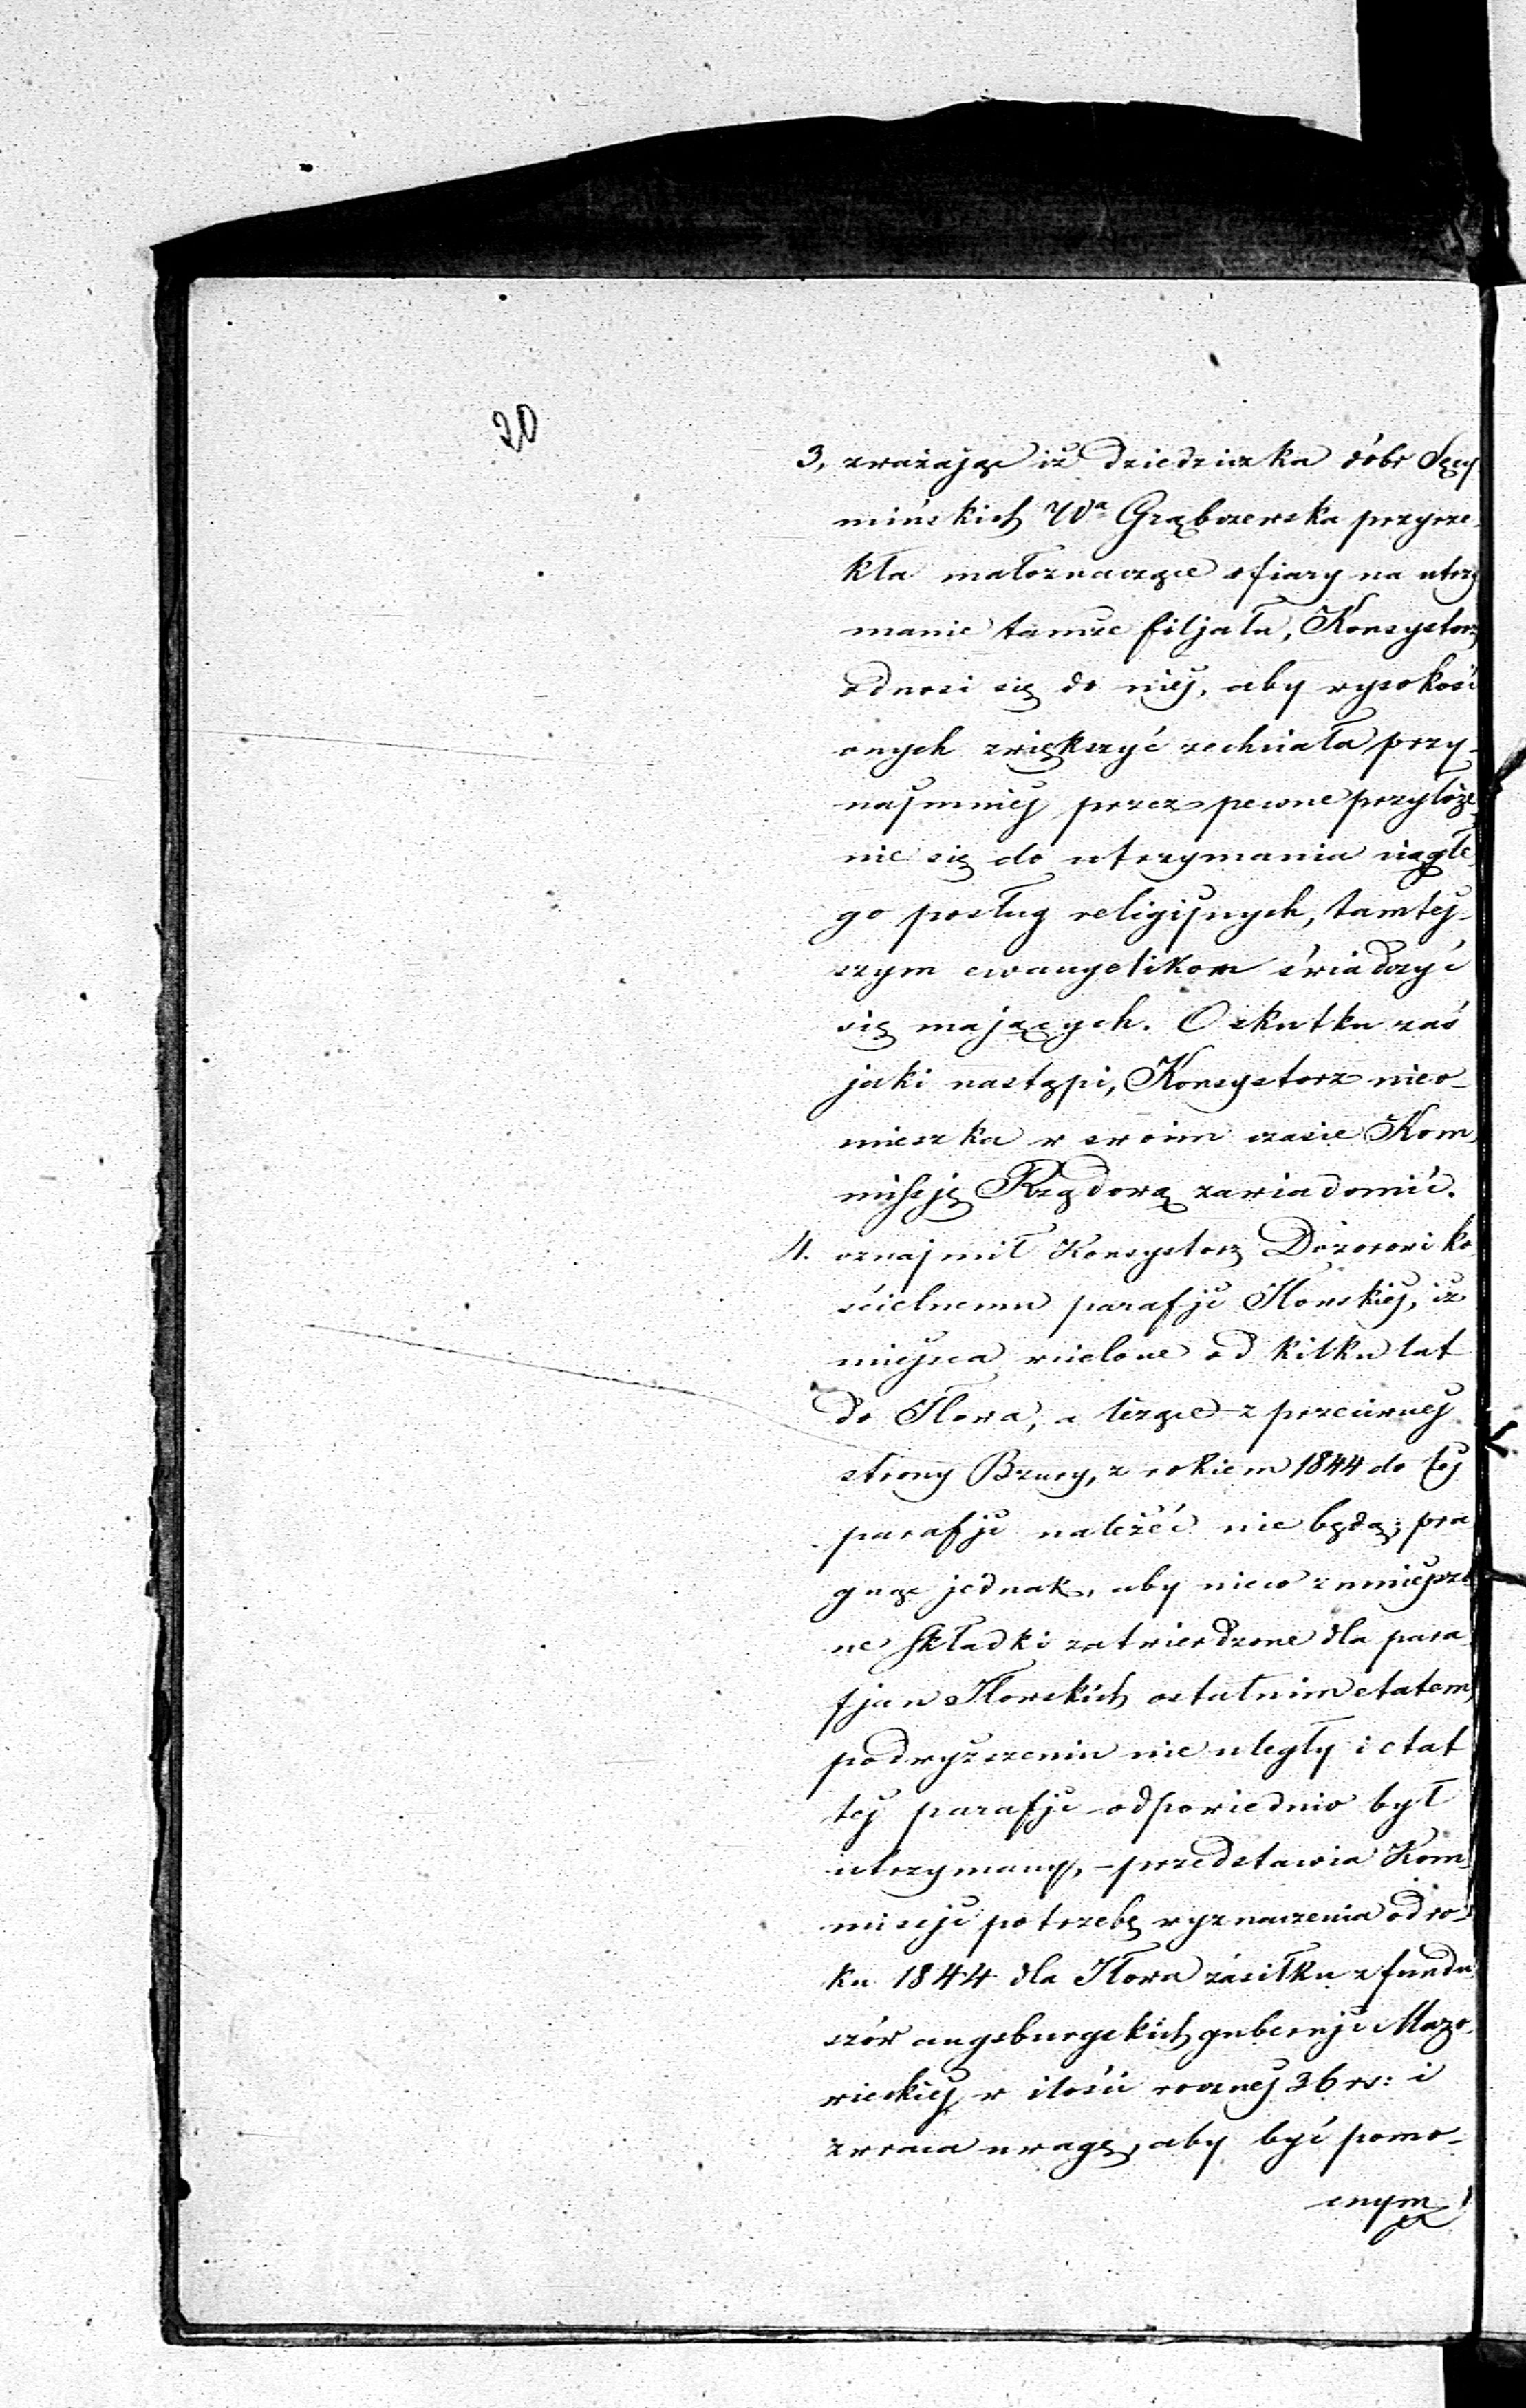 20
3, zważając iż dziedziczka dóbr Sęcy
mińskich Wa Grąbczewska przyrze-
kła małoznaczące ofiary na utrzy
manie tamże filjału, Konsystorz
odnosi się do niej, aby wysokość
onych zwiększyć zechciała przy-
najmniej przez pewne przyłoże
nie się do utrzymania ciągłe
go posług religijnych, tamtej-
szym ewangelikom świadczyć
się mających. O skutku zaś
jaki nastąpi, Konsystorz nieo-
mieszka w swoim czasie Kom
missję Rządową zawiadomić.
4. oznajmił Konsystorz Dozorowi ko
ścielnemu parafji Iłowskiej, iż
miejsca wcielone od kilku lat
do Iłowa, a leżące z przeciwnej
strony Bzury, z rokiem 1844 do tej
parafji należéć nie będą; pra
gnąc jednak, aby nieco zmniejszo
ne składki zatwierdzone dla para
fjan Iłowskich ostatnim etatem
podwyższeniu nie uległy i etat
tej parafji odpowiednio był
utrzymany, – przedstawia Kom
missji potrzebę wyznaczenia od ro-
ku 1844 dla Iłowa zasiłku z fundu
szów augsburgskich gubernji Mazo
wieckiej w ilości rocznej 36 rs: i
zwraca uwagę, aby być pomo-
cnym